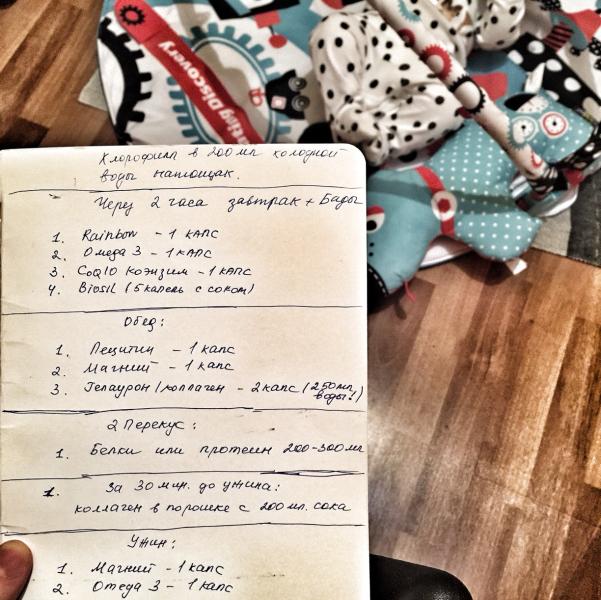 Discovery
Хлорофилл в 200 мл холодной
воды натощак.
Через 2 часа завтрак + Бады
1. Rainbow - 1 капс
2. Омега 3 - 1 капс
3. CoQ10 коэнзим - 1 капс
4. Biosil (5 капель с соком)
Обед:
1. Лецитин - 1 капс
2. Магний - 1 капс
3. Гелаурон/коллаген - 2 капс (250 мл
воды!)
2 Перекус:
1. Белки или протеин 200-300 мл
1. За 30 мин. до ужина:
коллаген в порошке с 200 мл. сока
Ужин:
1. Магний - 1 капс
2. Омега 3 - 1 капс